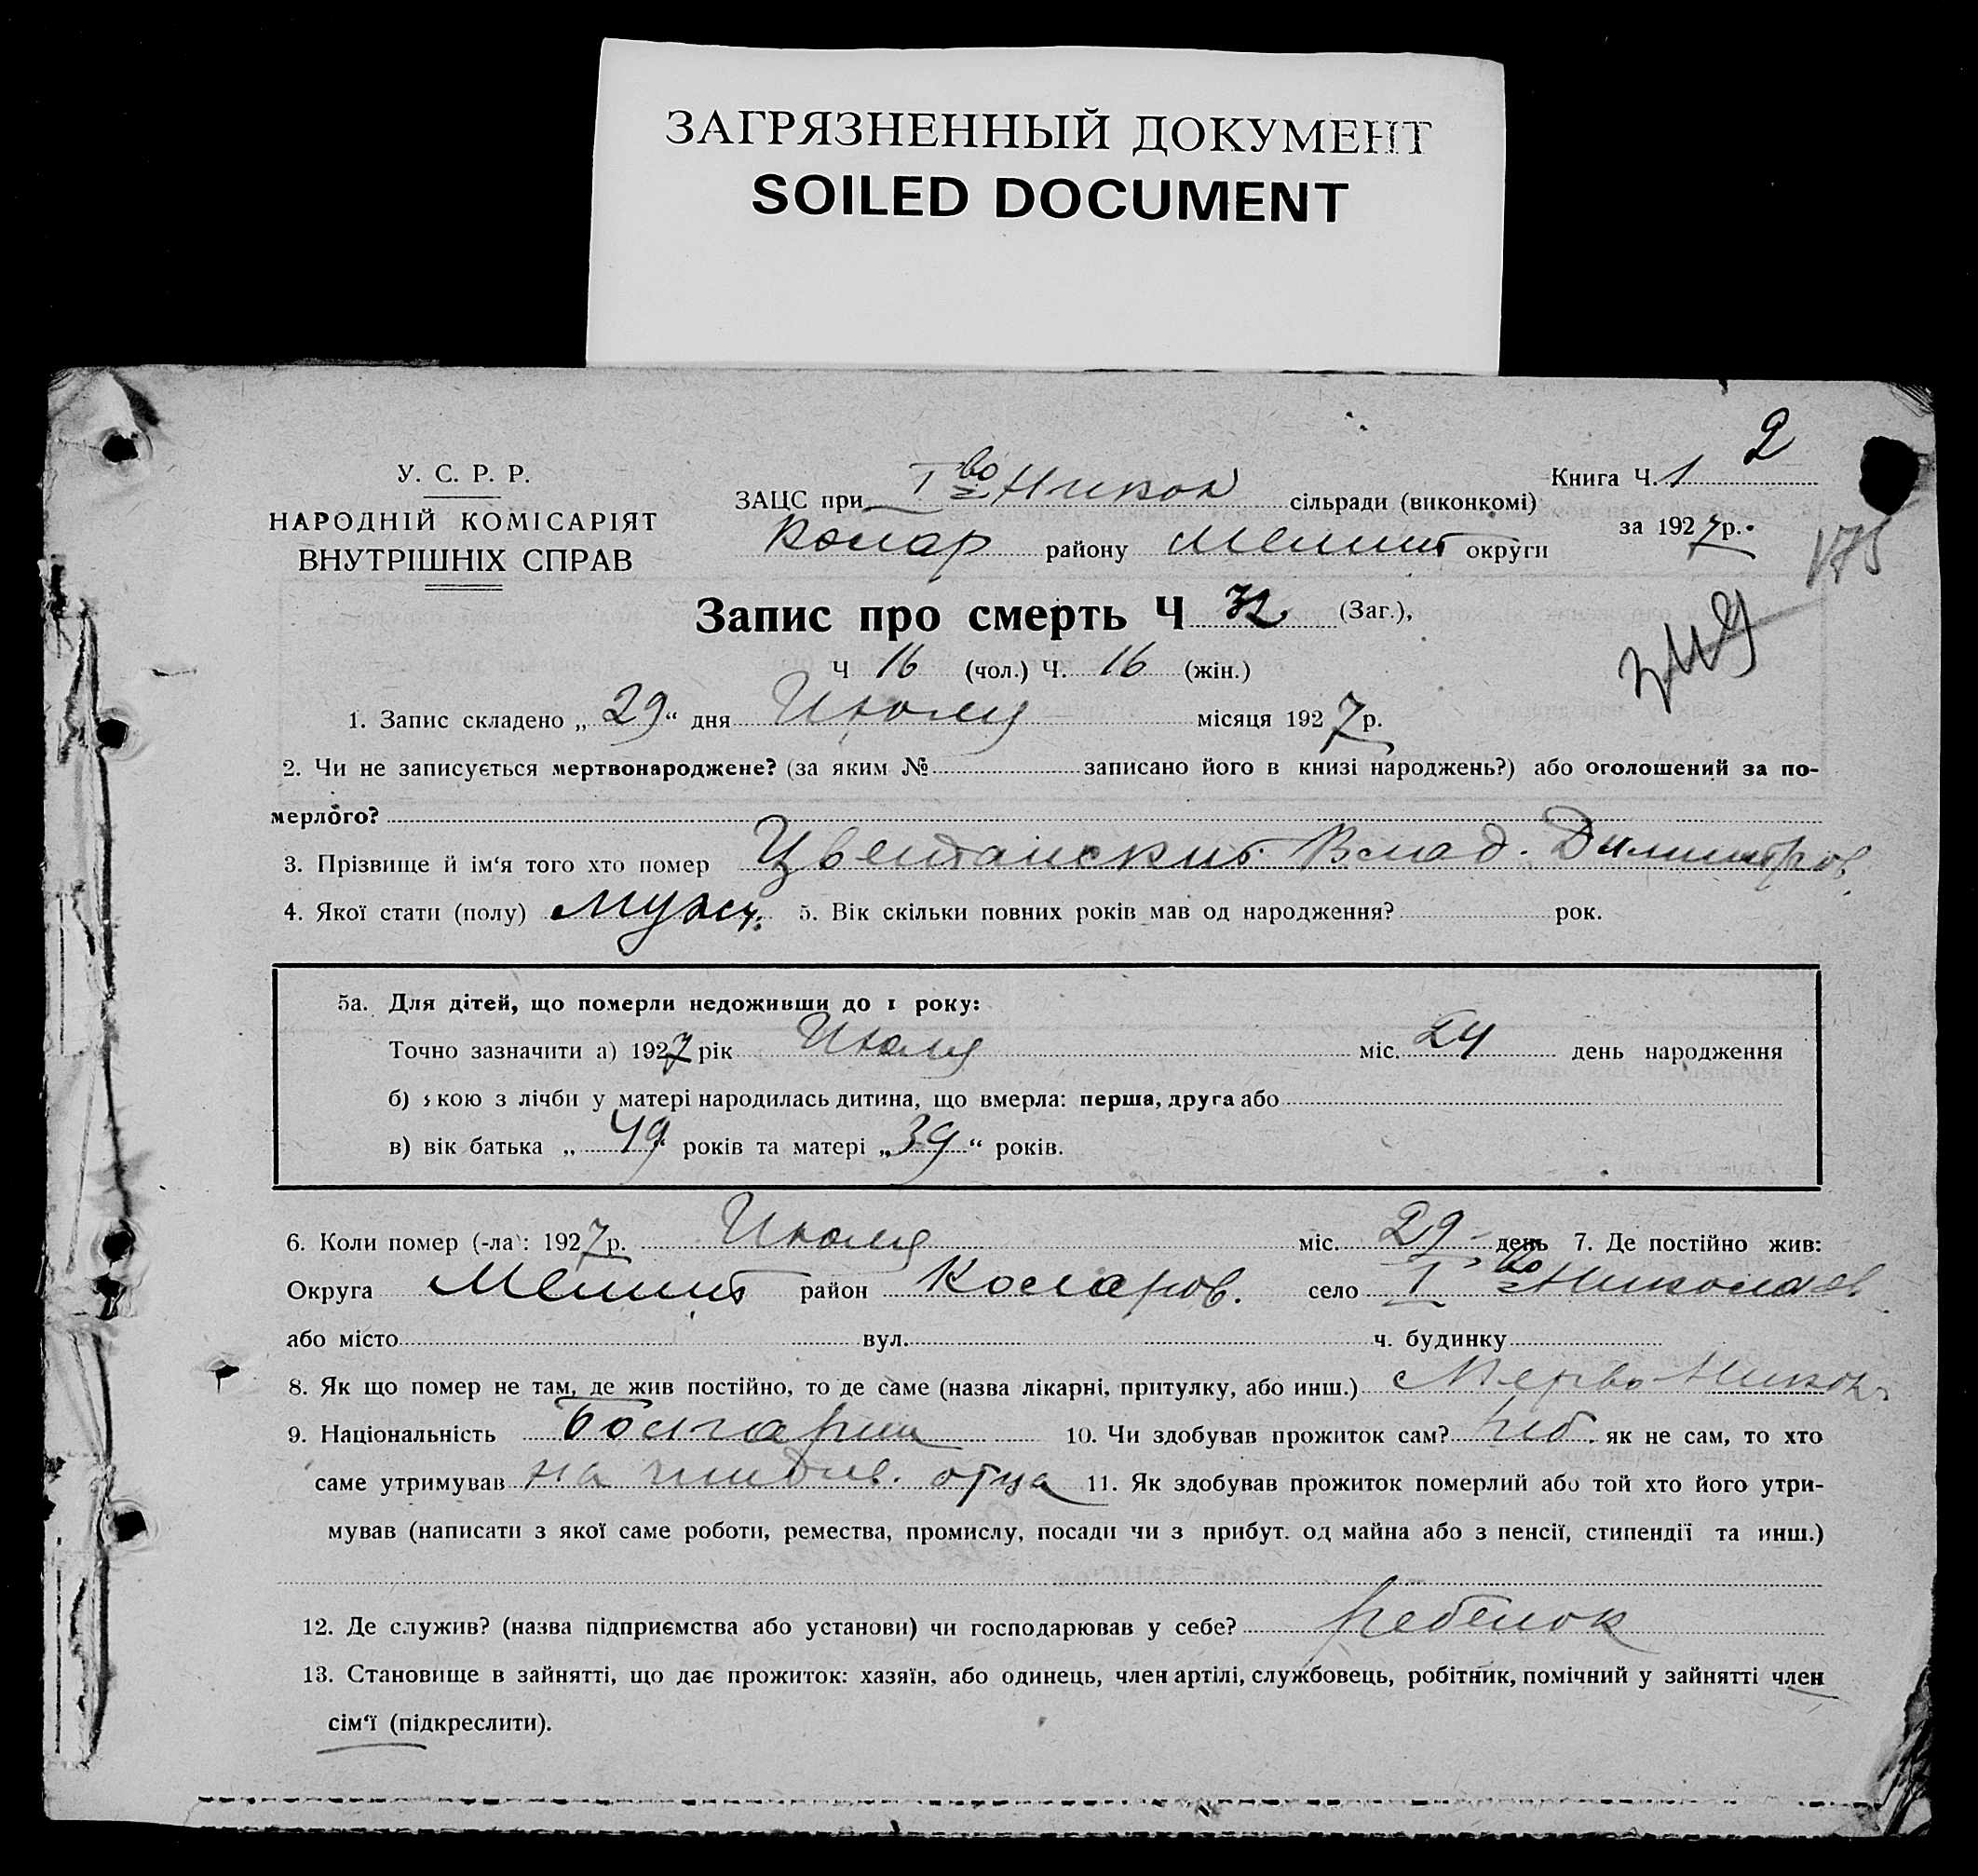 ЗАГРЯЗНЕННЫЙ ДОКУМЕНТ
SOILED DOCUMENT
2
У. С. Р. Р.
НАРОДНІЙ КОМІСАРІЯТ
ВНУТРІШНІХ СПРАВ
ЗАЦС при I во Никол сільради (виконкомі)
Колар району Мелит округи
Книга Ч. 1
за 1927 р.
175
Запис про смерть Ч 32 (Заг.),
Ч 16 (чол.) Ч. 16 (жін.)
1. Запис складено „ 29 “ дня Июля місяця 1927 р.
2. Чи не записується мертвонароджене? (за яким № записано його в книзі народжень?) або оголошений за по-
мерлого?
3. Прізвище й ім‘я того хто помер Цветанский Влад. Димитров
4. Якої стати (полу) мужч. 5. Вік скільки повних років мав од народження? рок.
5а. Для дітей, що померли недоживши до 1 року:
Точно зазначити а) 1927 рік Июля міс. 24 день народження
б) якою з лічби у матері народилась дитина, що вмерла: перша, друга або
в) вік батька „ 49 “ років та матері „ 39 “ років.
6. Коли помер (-ла): 1927 р. Июля міс. 29 день 7. Де постійно жив:
Округа Мелит район Коларов. село I во Николаев
або місто вул. ч. будинку
8. Як що помер не там, де жив постійно, то де саме (назва лікарні, притулку, або инш.)
9. Національність болгарин 10. Чи здобував прожиток сам? реб. як не сам, то хто
саме утримував на иждив. отца 11. Як здобував прожиток померлий або той хто його утри-
мував (написати з якої саме роботи, ремества, промислу, посади чи з прибут. од майна або з пенсії, стипендії та инш.)
12. Де служив? (назва підприємства або установи) чи господарював у себе? ребенок
13. Становище в зайнятті, що дає прожиток: хазяїн, або одинець, член артілі, службовець, робітник, помічний у зайнятті член
сім‘ї (підкреслити).